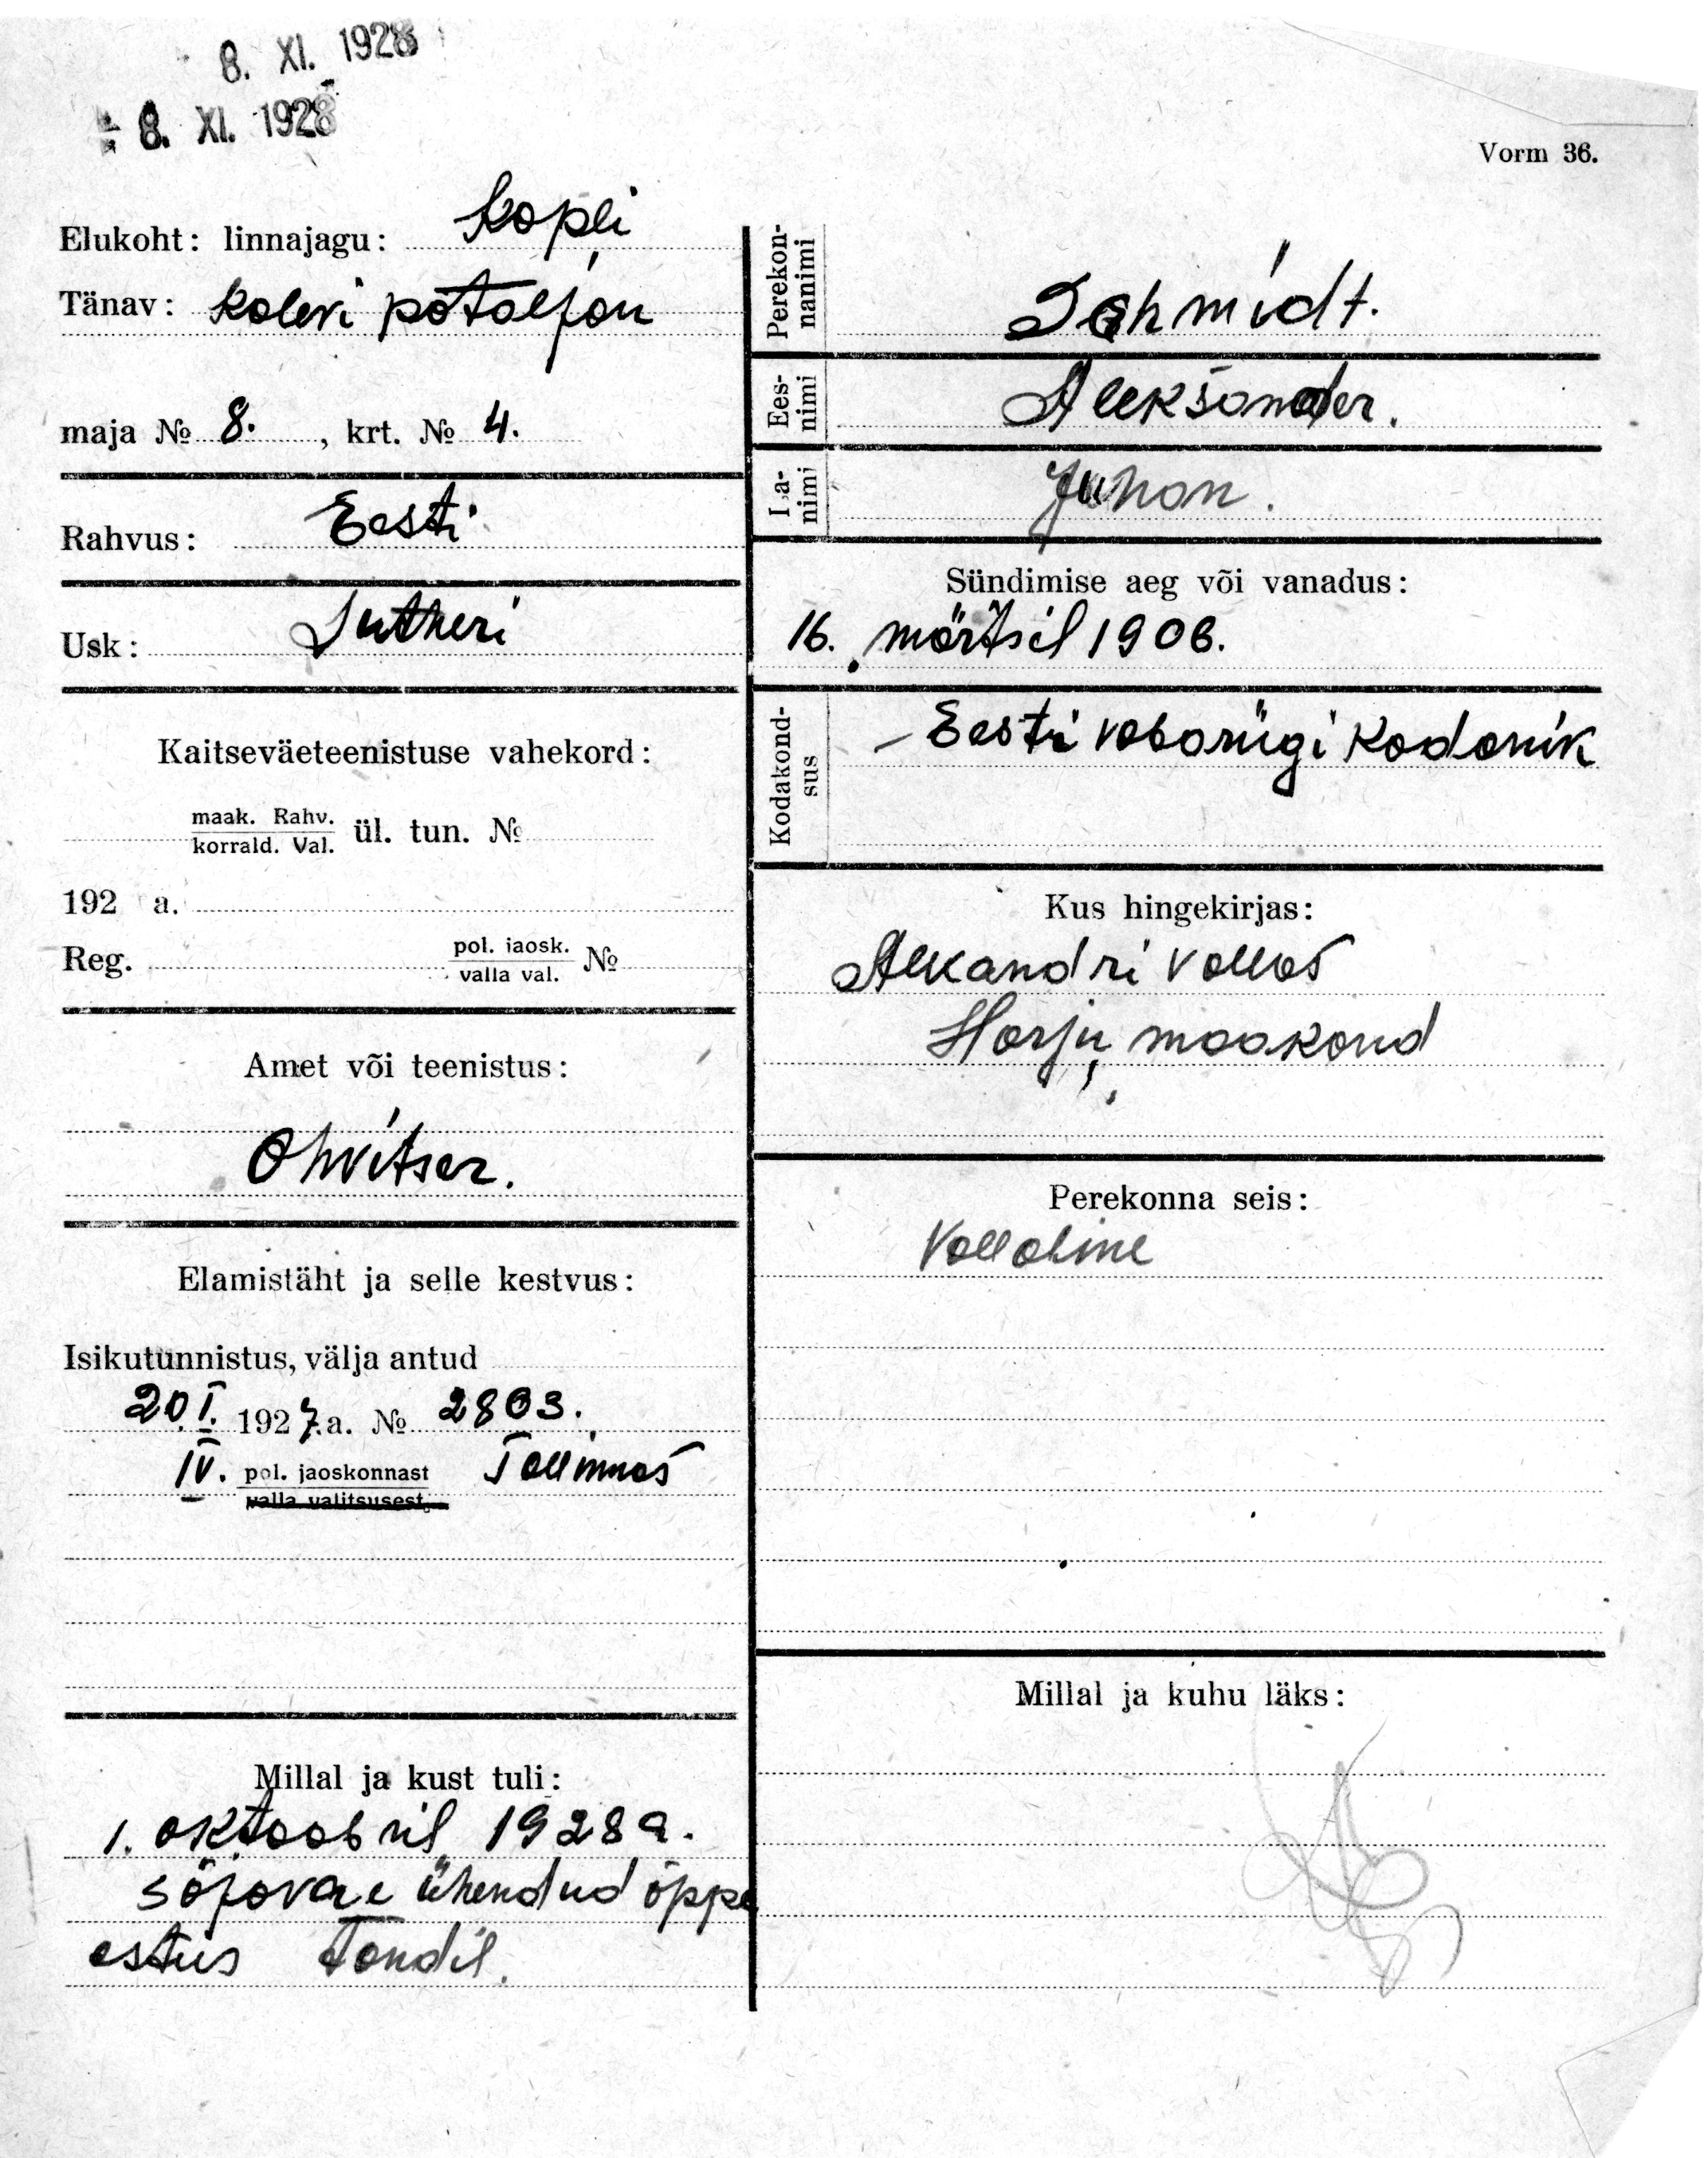 8. XI. 1928
- 8. XI. 1928
Vorm 36.
Elukoht: linnajagu: Kopli
Tänav: Kalevi pataljon
maja № 8. , krt. № 4.
Rahvus: Eesti
Usk: Lutheri
Kaitseväeteenistuse vahekord:
maak. Rahv.
korrald. Val. ül. tun. №
192 a.
Reg. pol. jaosk.
valla val. №
Amet või teenistus:
Ohvitser.
Elamistäht ja selle kestvus:
Isikutunnistus, välja antud
20.I. 1927.a. № 2803.
IV. pol. jaoskonnast Tallinnas
valla valitsusest
Millal ja kust tuli:
1. oktoobril 1928 a.
sõjavae ühendud õppe
astus Tondil.
Perekon-
nanimi
Schmidt.
Ees-
nimi
Aleksander.
Isa-
nimi
Juhan.
Sündimise aeg või vanadus:
16. märtsil 1906.
Kodakond-
sus
Eesti vabariigi kodanik
Kus hingekirjas:
vallas
Harju maakond
Perekonna seis:
Vallaline
Millal ja kuhu läks: